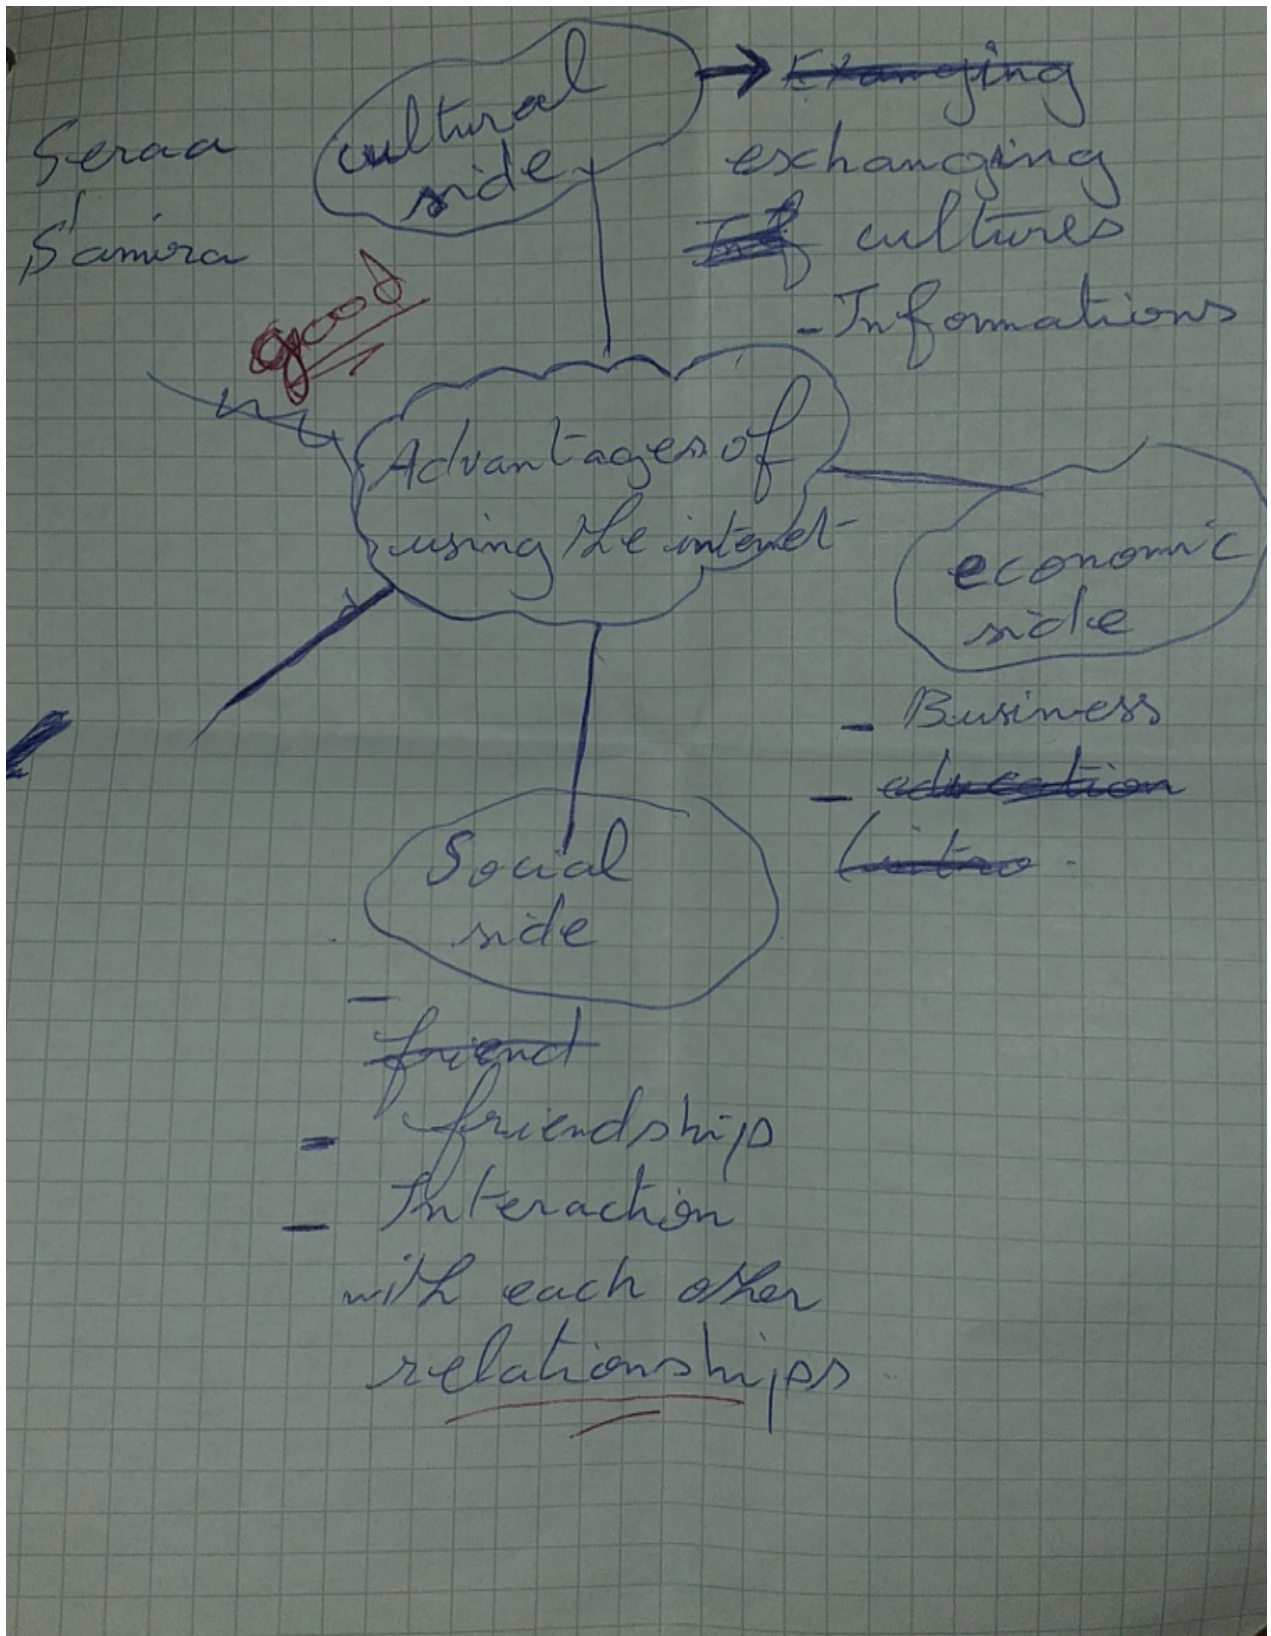 Seraa
Samira
good
cultural
side
Exanging
exhanging
Inf cultures
- Informations
Advantages of
using the internet
economic
side
- Business
- education
(intro.
Social
side
-
friend
- friendships
- Interaction
with each other
relationships